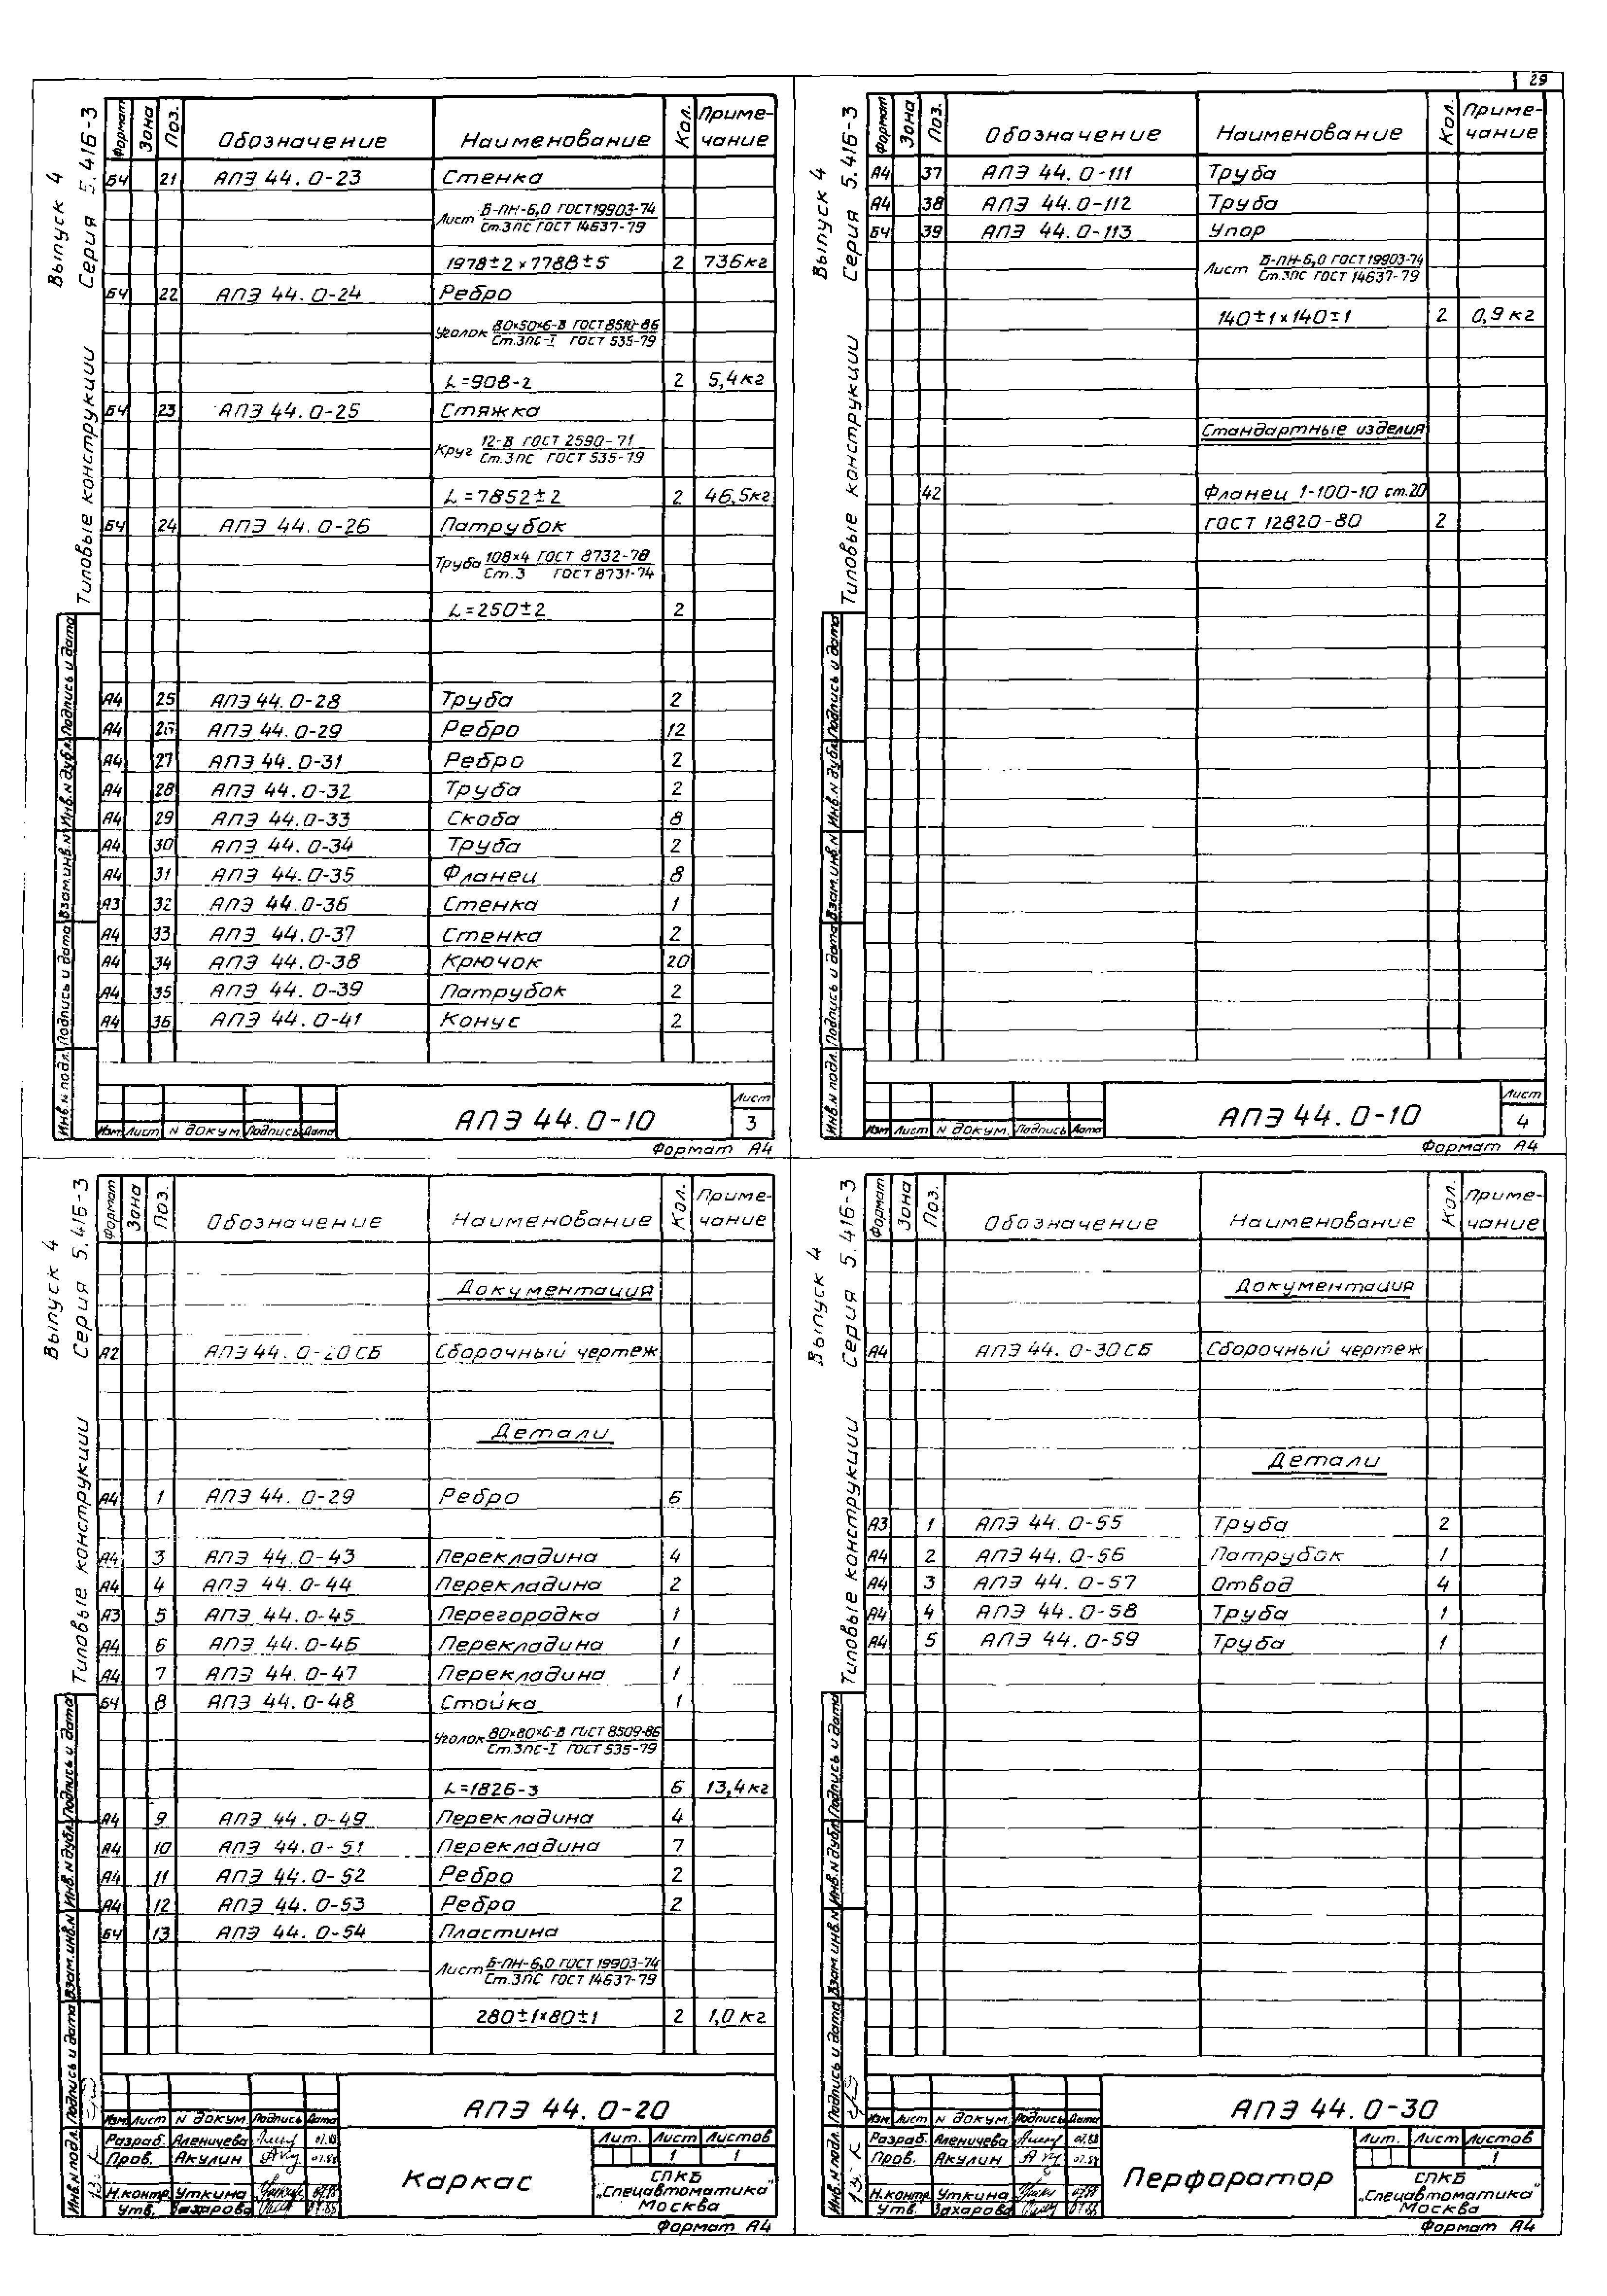 29
Выпуск 4
Серия 5.416-3
Типовые конструкции
Формат Зона Поз. Обозначение Наименование Кол. Приме-
чание
БЧ 21 АПЭ 44.0-23 Стенка
Лист Б-ПН-6,0 ГОСТ 19903-74
Ст.3ПС ГОСТ 14637-79
1978±2×7788±5 2 736кг
БЧ 22 АПЭ 44.0-24 Ребро
Уголок 80×50×6-В ГОСТ 8510-86
Ст.3ПС-I ГОСТ 535-79
L=908-2 2 5,4кг
БЧ 23 АПЭ 44.0-25 Стяжка
Круг 12-В ГОСТ 2590-71
Ст.3ПС ГОСТ 535-79
L=7852±2 2 46,5кг
БЧ 24 АПЭ 44.0-26 Патрубок
Труба 108×4 ГОСТ 8732-78
Ст.3 ГОСТ 8731-74
L=250±2 2
А4 25 АПЭ 44.0-28 Труба 2
А4 26 АПЭ 44.0-29 Ребро 12
А4 27 АПЭ 44.0-31 Ребро 2
А4 28 АПЭ 44.0-32 Труба 2
А4 29 АПЭ 44.0-33 Скоба 8
А4 30 АПЭ 44.0-34 Труба 2
А4 31 АПЭ 44.0-35 Фланец 8
А3 32 АПЭ 44.0-36 Стенка 1
А4 33 АПЭ 44.0-37 Стенка 2
А4 34 АПЭ 44.0-38 Крючок 20
А4 35 АПЭ 44.0-39 Патрубок 2
А4 36 АПЭ 44.0-41 Конус 2
Инв.N подл. Подпись и дата Взам.инв.N Инв.N дубл. Подпись и дата
Изм Лист N докум. Подпись Дата
АПЭ 44.0-10
Лист
3
Формат А4
Выпуск 4
Серия 5.416-3
Типовые конструкции
Формат Зона Поз. Обозначение Наименование Кол. Приме-
чание
А4 37 АПЭ 44.0-111 Труба
А4 38 АПЭ 44.0-112 Труба
БЧ 39 АПЭ 44.0-113 Упор
Лист Б-ПН-6,0 ГОСТ 19903-74
Ст.3ПС ГОСТ 14637-79
140±1×140±1 2 0,9 кг
Стандартные изделия
42 Фланец 1-100-10 ст.20
ГОСТ 12820-80 2
Инв.N подл. Подпись и дата Взам.инв.N Инв.N дубл. Подпись и дата
Изм Лист N докум. Подпись Дата
АПЭ 44.0-10
Лист
4
Формат А4
Выпуск 4
Серия 5.416-3
Типовые конструкции
Формат Зона Поз. Обозначение Наименование Кол. Приме-
чание
Документация
А2 АПЭ 44.0-20 СБ Сборочный чертеж
Детали
А4 1 АПЭ 44.0-29 Ребро 6
А4 3 АПЭ 44.0-43 Перекладина 4
А4 4 АПЭ 44.0-44 Перекладина 2
А3 5 АПЭ 44.0-45 Перегородка 1
А4 6 АПЭ 44.0-46 Перекладина 1
А4 7 АПЭ 44.0-47 Перекладина 1
БЧ 8 АПЭ 44.0-48 Стойка 1
Уголок 80×80×6-В ГОСТ 8509-86
Ст.3ПС-I ГОСТ 535-79
L=1826-3 6 13,4кг
А4 9 АПЭ 44.0-49 Перекладина 4
А4 10 АПЭ 44.0-51 Перекладина 7
А4 11 АПЭ 44.0-52 Ребро 2
А4 12 АПЭ 44.0-53 Ребро 2
БЧ 13 АПЭ 44.0-54 Пластина
Лист Б-ПН-6,0 ГОСТ 19903-74
Ст.3ПС ГОСТ 14637-79
280±1×80±1 2 1,0 кг
Инв.N подл. Подпись и дата Взам.инв.N Инв.N дубл. Подпись и дата
Изм Лист N докум. Подпись Дата
АПЭ 44.0-20
Разраб. Аленичева 07.88
Пров. Акулин 07.88
Н.контр. Уткина 07.88
Утв. Захарова 07.88
Каркас
Лит. Лист Листов
1 1
СПКБ
„Спецавтоматика"
Москва
Формат А4
Выпуск 4
Серия 5.416-3
Типовые конструкции
Формат Зона Поз. Обозначение Наименование Кол. Приме-
чание
Документация
А4 АПЭ 44.0-30 СБ Сборочный чертеж
Детали
А3 1 АПЭ 44.0-55 Труба 2
А4 2 АПЭ 44.0-56 Патрубок 1
А4 3 АПЭ 44.0-57 Отвод 4
А4 4 АПЭ 44.0-58 Труба 1
А4 5 АПЭ 44.0-59 Труба 1
Инв.N подл. Подпись и дата Взам.инв.N Инв.N дубл. Подпись и дата
Изм Лист N докум. Подпись Дата
АПЭ 44.0-30
Разраб. Аленичева 07.88
Пров. Акулин 07.88
Н.контр. Уткина 07.88
Утв. Захарова 07.88
Перфоратор
Лит. Лист Листов
1
СПКБ
„Спецавтоматика"
Москва
Формат А4